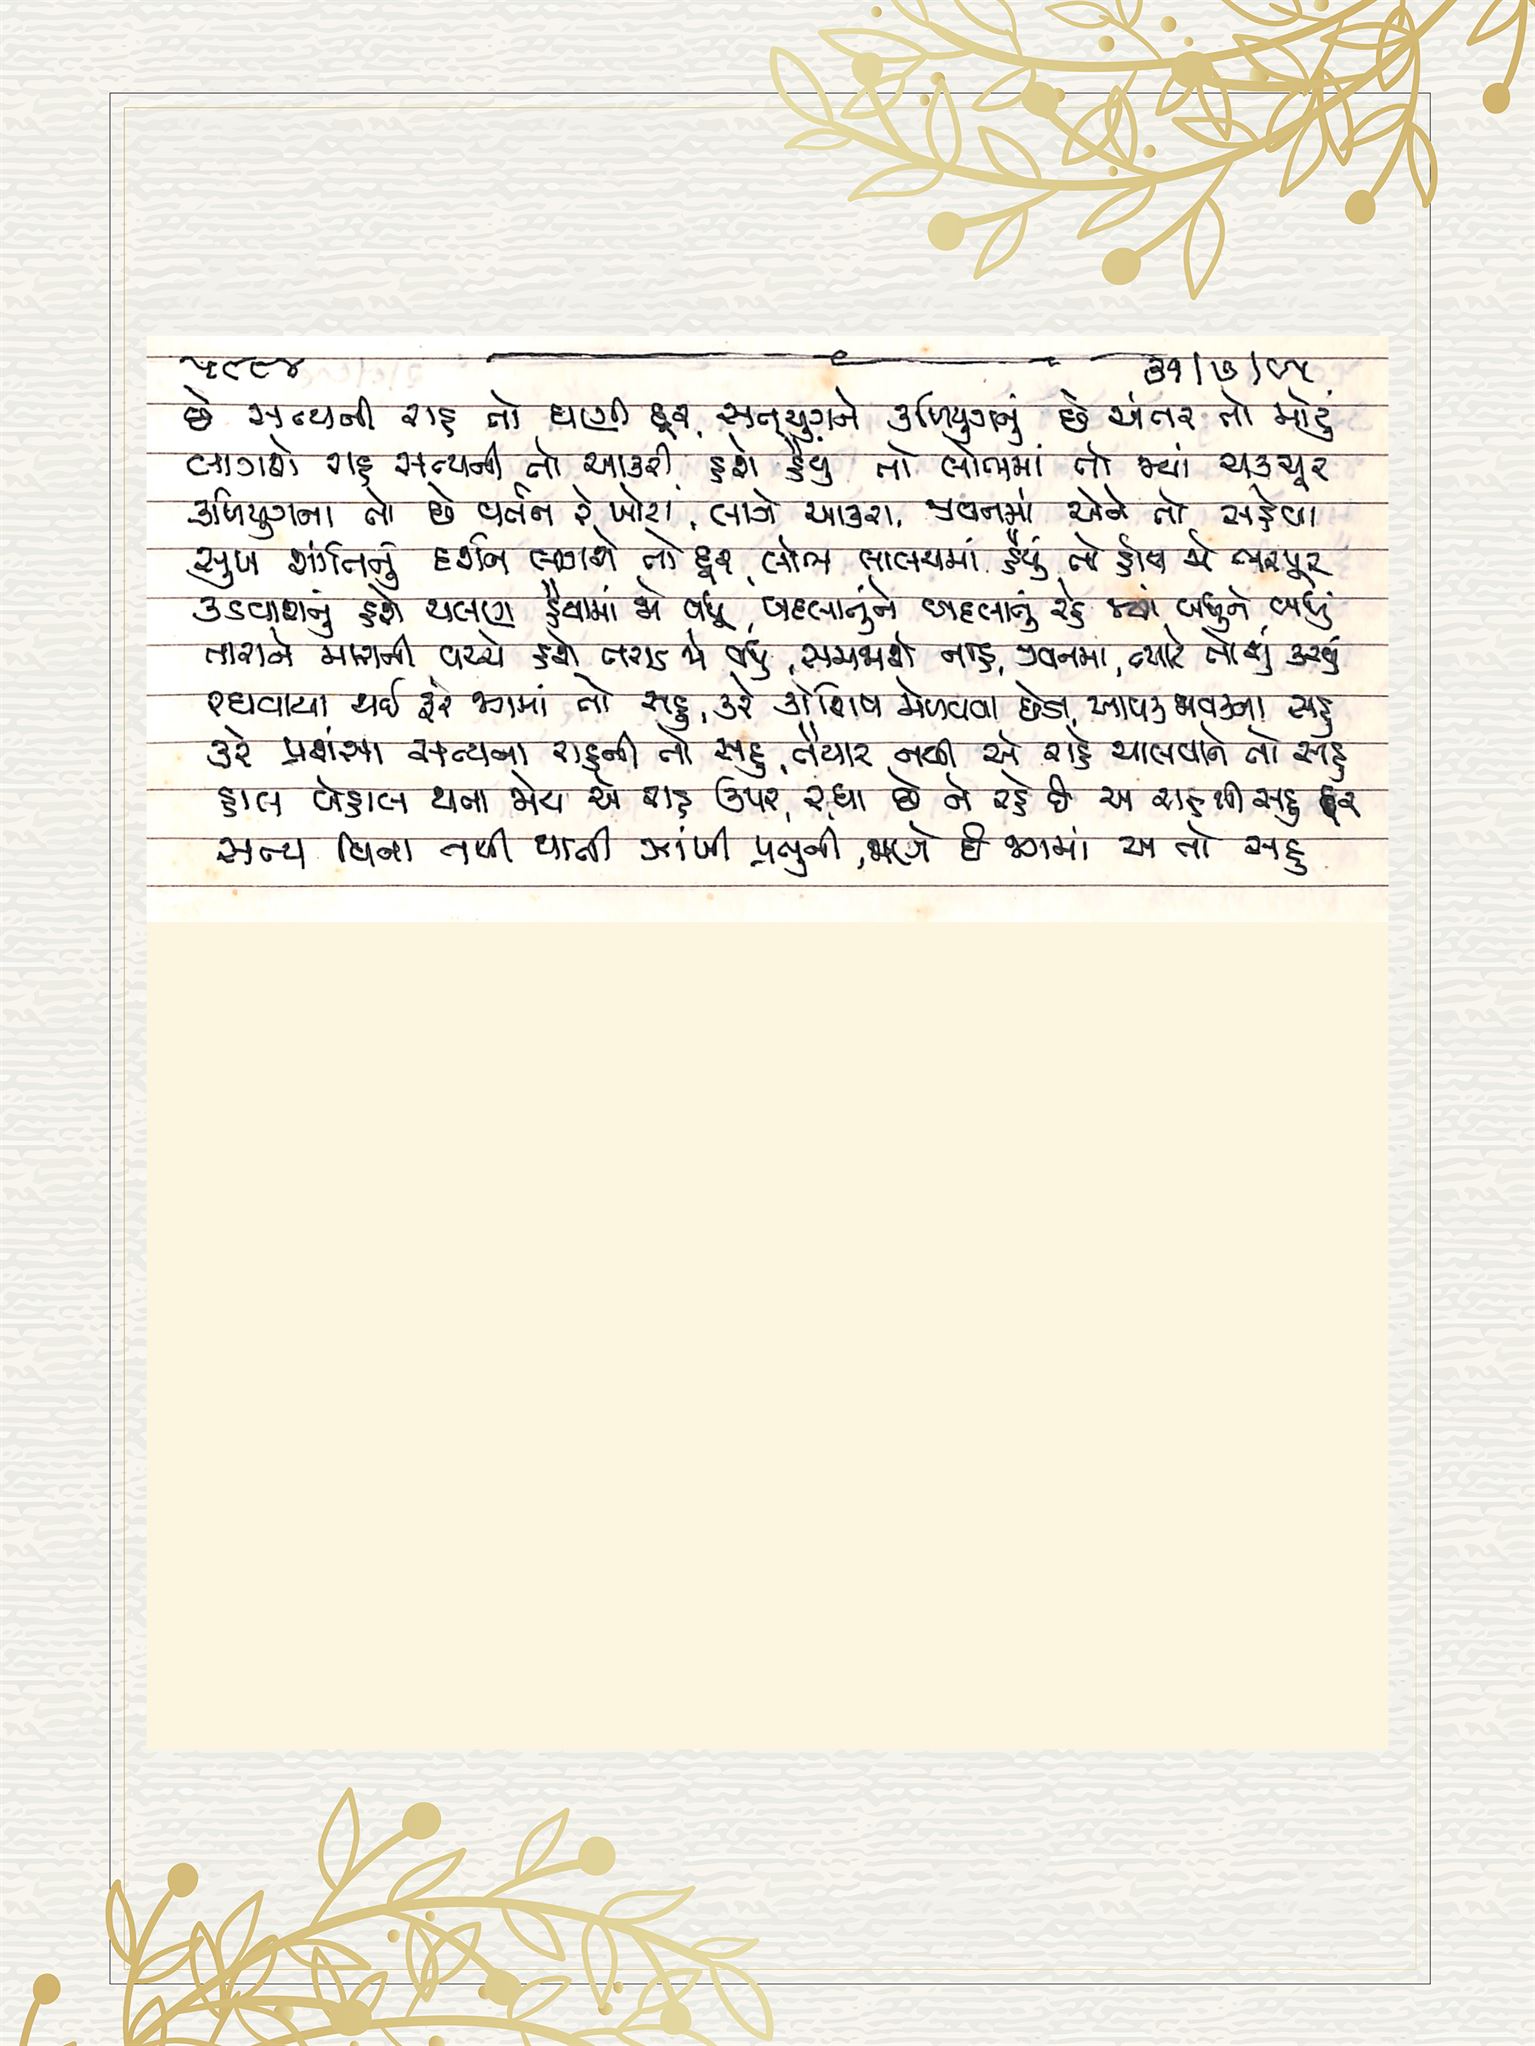 ૫૮૮૪ ૩૧/૭/૯૫
છે સત્યની રાહ તો ઘણી દૂર, સત્‌યુગને કળિયુગનું છે અંતર તો મોટું
લાગશે રાહ સત્યની તો આકરી, હશે હૈયું તો લોભમાં તો જ્યાં ચકચૂર
કળિયુગના તો છે વર્તન રે ખોરાં, લાગે આકરા, જીવનમાં એને તો સહેવા
સુખ શાંતિનું દર્શન લાગશે તો દૂર, લોભ લાલચમાં હૈયું તો હોય જો ભરપૂર
કડવાશનું હશે ચલણ હૈયામાં જો વધુ, બદલાનુંને બદલાનું રહે જ્યાં બધુને બધું
તારાને મારાની વચ્ચે હશે તરાડ જો વધુ, સમજાશે નાહ, જીવનમાં, ત્યારે તો શું કરવું
રઘવાયા થઈ ફરે જગમાં તો સહુ, કરે કોશિષ મેળવવા છેડા, આવક જાવકના સહુ
કરે પ્રશંસા સત્યના રાહની તો સહુ, તૈયાર નથી એ રાહે ચાલવાને તો સહુ
હાલ બેહાલ થના જોય એ રાહ ઉપર, રહ્યા છે ને રહે છે એ રાહથી સહુ દૂર
સત્ય વિના નથી થાતી ઝાંખી પ્રભુની, જાણે છે જગમાં એ તો સહુ